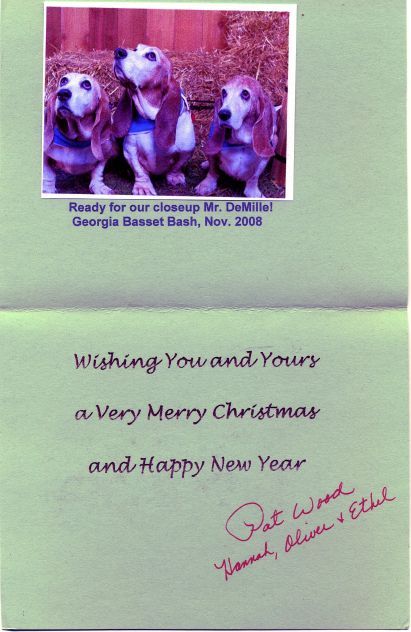 Ready for our closeup Mr. DeMille!
Georgia Basset Bash, Nov. 2008
Wishing You and Yours
a Very Merry Christmas
and Happy New Year
Pat Wood
Hannah, Oliver & Ethel